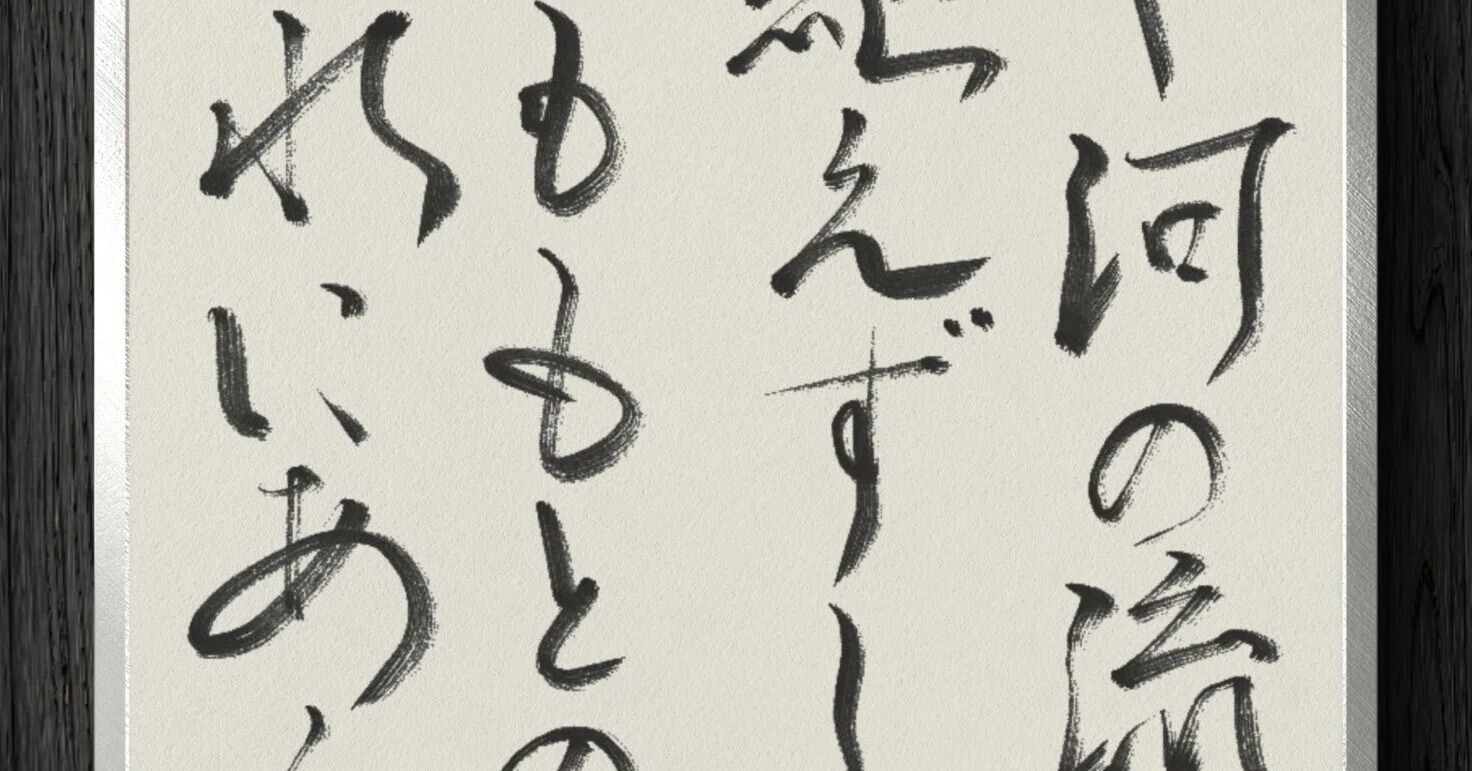 河の流
絶えずし
ももとの
水にあ